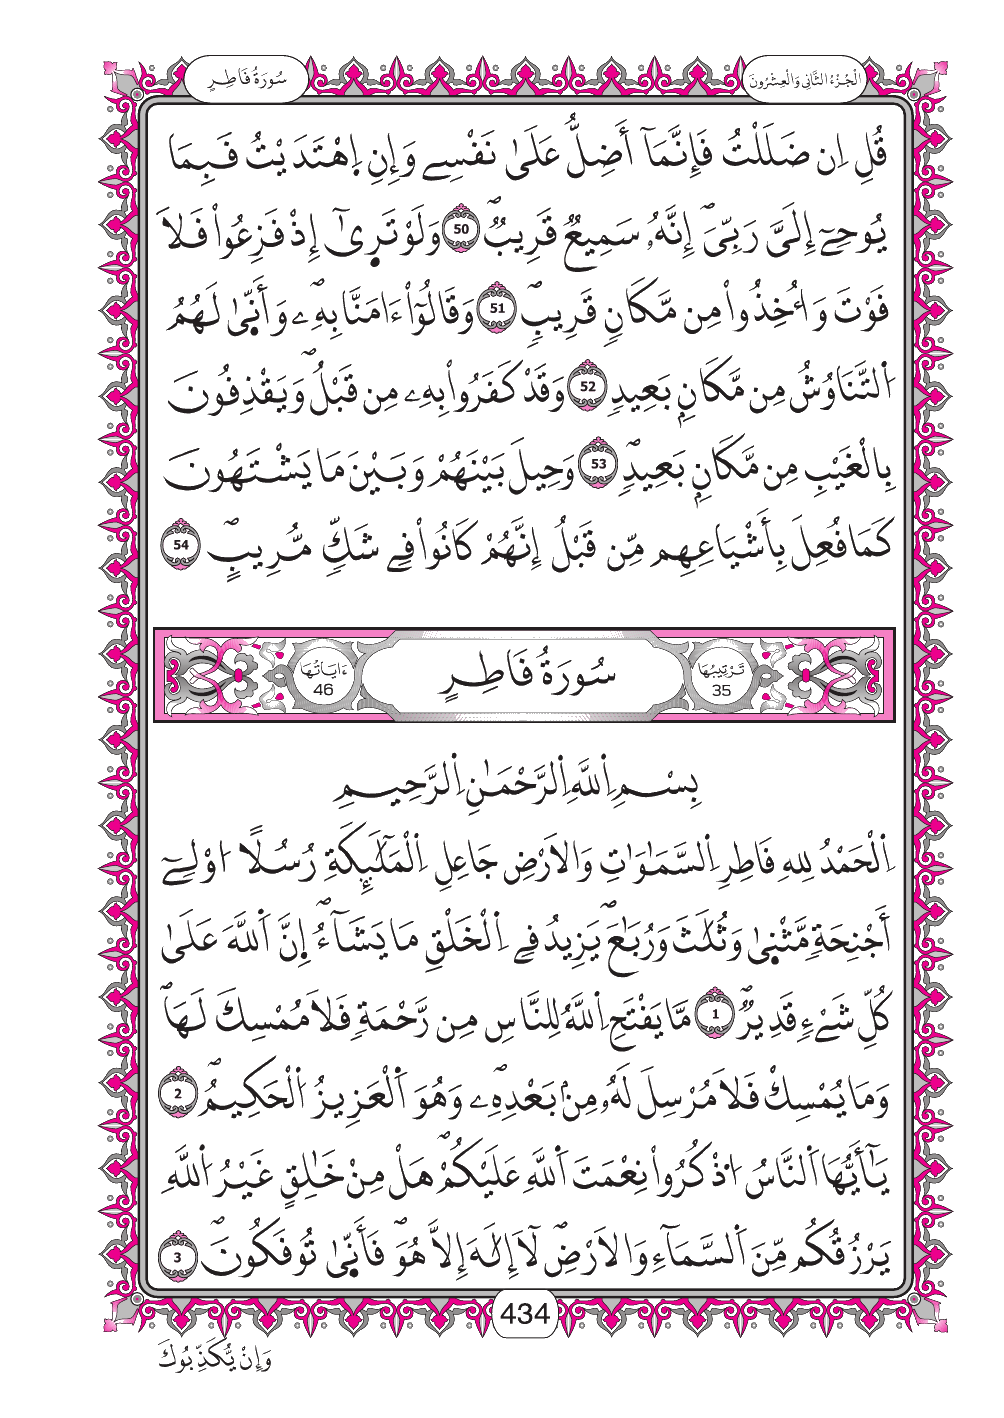 الْجُزْءُ الثَّانِي وَالْعِشْرُونَ
سُورَةُ فَاطِرٍ
قُلِ اِن ضَلَلْتُ فَإِنَّمَآ أَضِلُّ عَلَىٰ نَفْسِے وَإِنِ اِهْتَدَيْتُ فَبِمَا
يُوحِےٓ إِلَىَّ رَبِّىَۖ إِنَّهُۥ سَمِيعٌ قَرِيبٌۖ 50 وَلَوْ تَرِىٰٓ إِذْ فَزِعُواْ فَلَا
فَوْتَ وَأُخِذُواْ مِن مَّكَانٍ قَرِيبٍۖ 51 وَقَالُوٓاْ ءَامَنَّا بِهِۦۖ وَأَنّ۪ىٰ لَهُمُ
اُ۬لتَّنَاوُشُ مِن مَّكَانِۢ بَعِيدٍۖ 52 وَقَدْ كَفَرُواْ بِهِۦ مِن قَبْلُۖ وَيَقْذِفُونَ
بِالْغَيْبِ مِن مَّكَانِۢ بَعِيدٍۖ 53 وَحِيلَ بَيْنَهُمْ وَبَيْنَ مَا يَشْتَهُونَ
كَمَا فُعِلَ بِأَشْيَاعِهِم مِّن قَبْلُ إِنَّهُمْ كَانُواْ فِے شَكٍّ مُّرِيبٍۖ 54
تَرْتِيبُهَا 35
سُورَةُ فَاطِرٍ
ءَايَاتُهَا 46
بِسْمِ اِ۬للَّهِ اِ۬لرَّحْمَٰنِ اِ۬لرَّحِيمِ
اِ۬لْحَمْدُ لِلهِ فَاطِرِ اِ۬لسَّمَٰوَٰتِ وَالَارْضِ جَاعِلِ اِ۬لْمَلَٰٓئِكَةِ رُسُلًا ا۟وْلِےٓ
أَجْنِحَةٖ مَّثْن۪ىٰ وَثُلَٰثَ وَرُبَٰعَۖ يَزِيدُ فِے اِ۬لْخَلْقِ مَا يَشَآءُۖ إِنَّ اَ۬للَّهَ عَلَىٰ
كُلِّ شَےْءٖ قَدِيرٌۖ 1 مَّا يَفْتَحِ اِ۬للَّهُ لِلنَّاسِ مِن رَّحْمَةٖ فَلَا مُمْسِكَ لَهَاۖ
وَمَا يُمْسِكْ فَلَا مُرْسِلَ لَهُۥ مِنۢ بَعْدِهِۦۖ وَهُوَ اَ۬لْعَزِيزُ اُ۬لْحَكِيمُۖ 2
يَٰٓأَيُّهَا اَ۬لنَّاسُ اُ۟ذْكُرُواْ نِعْمَتَ اَ۬للَّهِ عَلَيْكُمْۖ هَلْ مِنْ خَٰلِقٍ غَيْرُ اُ۬للَّهِ
يَرْزُقُكُم مِّنَ اَ۬لسَّمَآءِ وَالَارْضِۖ لَآ إِلَٰهَ إِلَّا هُوَۖ فَأَنّ۪ىٰ تُوفَكُونَۖ 3
434
وَإِنْ يُّكَذِّبُوكَ